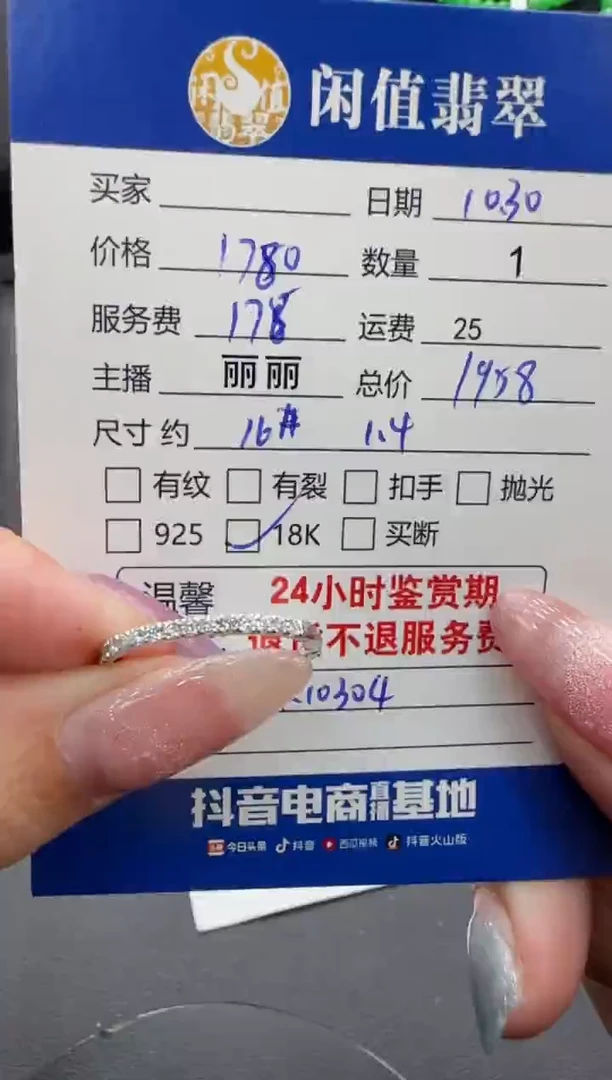 闲值翡翠
闲值翡翠
买家 日期 10.30
价格 1780 数量 1
服务费 178 运费 25
主播 丽丽 总价 1958
尺寸约 16# 1.4
有纹 有裂 扣手 抛光
925 18K 买断
温馨 24小时鉴赏期
不退服务费
10304
抖音电商直播基地
今日头条 抖音 西瓜视频 抖音火山版